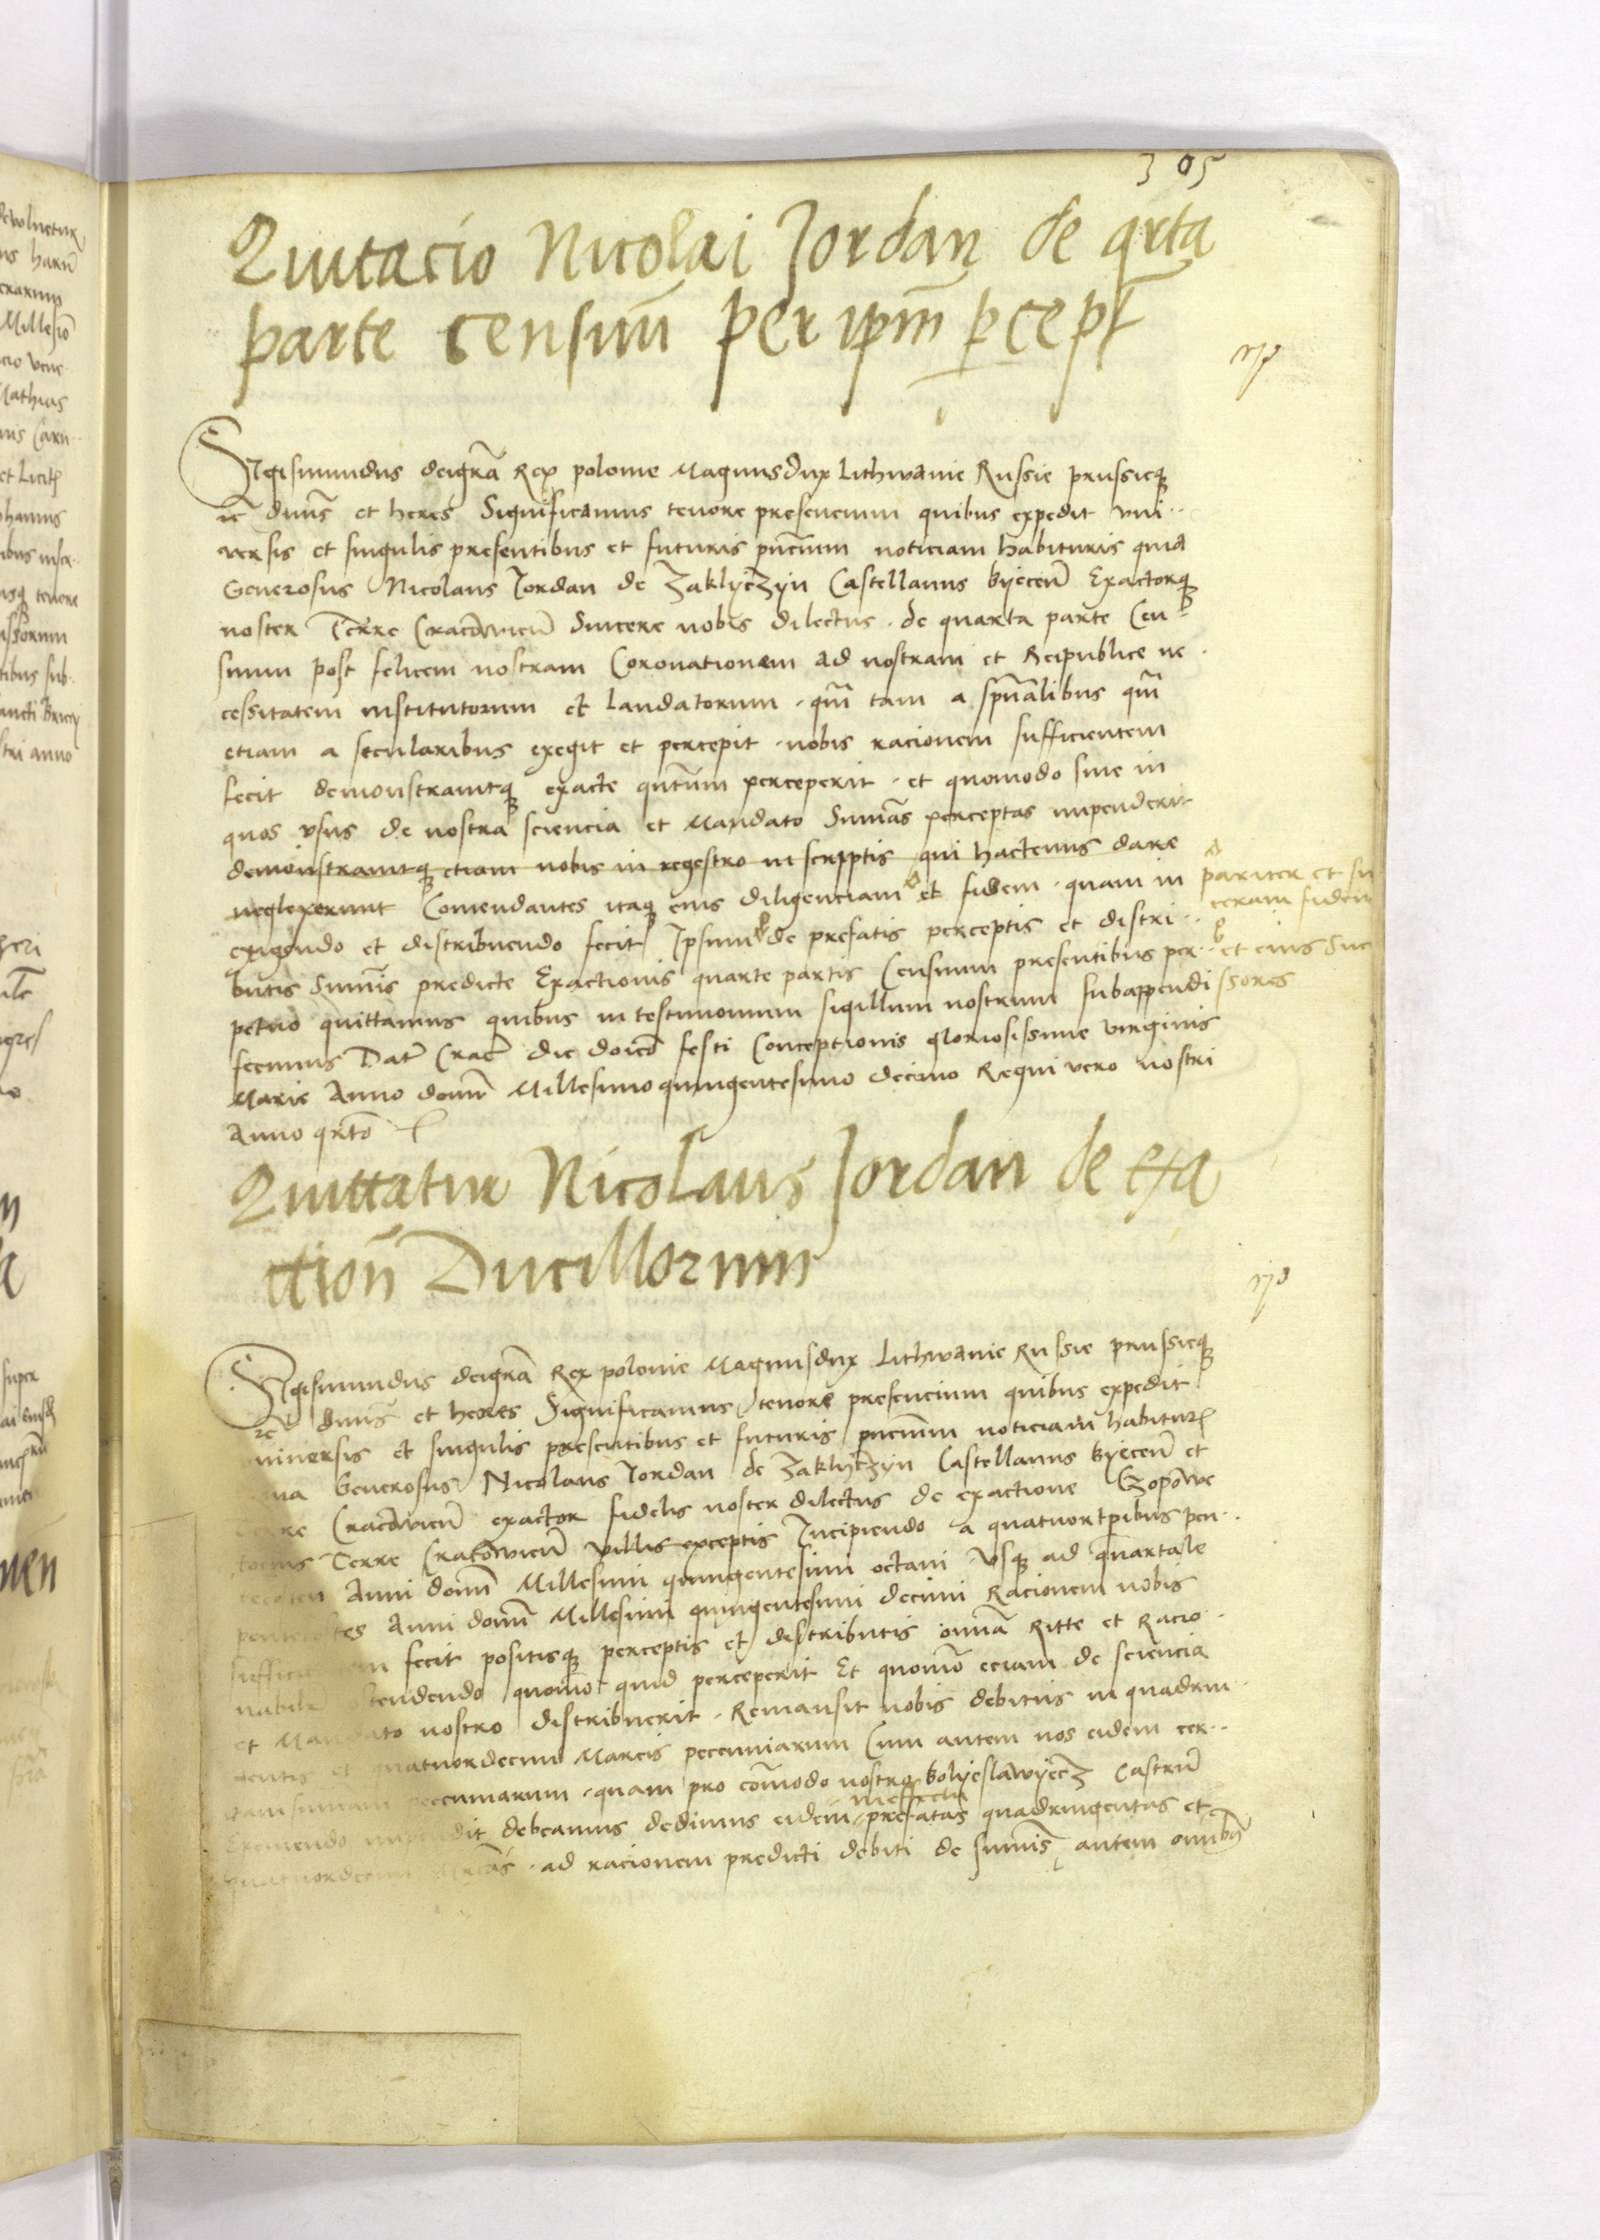 305
Quitacio Nicolai Jordan de qrta
parte censuũ per ipm̃ p̱cept
Sigismundus dei gr̃a Rex polonie Magnus dux Lithwanie Russie prussieq̃
rc̃ dnũs et heres Significamus tenore presencium quibus expedit vni..
versis et singulis presentibus et futuris pñcium noticiam habituris quia
Generosus Nicolaus Jordan de Zaklyczyn Castellanus byecen̄ Exactorq̃
noster Terre Cracōvien̄ Sincere nobis dilectus . de quarta parte Cen-
suum post felicem nostram Coronationem ad nostram et Reipublice ne.
cessitatem institutorum et laudatorum . qm̃ tam a spũalibus qm̃
etiam a secularibus exegit et percepit . nobis racionem sufficientem
fecit demonstravitq̃ exacte qntũm perceperit . et quomodo sive in
quos vsus de nostra sciencia et Mandato Sum̃as perceptas impenderit
demonstravitq̃ etiam nobis in regestro in scripptis qui hactenus dare
neglexerunt Comendantes itaq̃ eius diligenciam et fidem . quam in
pariter et sin
ceram fidem
exigendo et distribuendo fecit Ipsum de prefatis perceptis et distri..
butis Sum̃is predicte Exactionis quarte partis Censuum presentibus per..
et eius Suc
petuo quittamus quibus in testimonium sigillum nostrum subappendi
ssores
fecimus Dat̃ Crac̃ die doĩco festi Conceptionis gloriosissime virginis
Marie Anno domĩ Millesimo quingentesimo decimo Regni vero nostri
Anno qrto
Quittatur Nicolaus Jordan de exa
ction̄ Ducillorum
Sigismundus dei gr̃a Rex polonie Magnus dux Lithwanie Russie prussieq̃
rc̃ dnũs et heres Significamus tenore presencium quibus expedit
universis et singulis presentibus et futuris pñcium noticiam habitur̃
Generosus Nicolaus Jordan de Zaklyczyn Castellanus byecen̄ et
Cracōvien̄ exactor fidelis noster dilectus de exactione Czopowe
tocius Terre Cracōvien̄ villis exceptis Incipiendo a quatuortp̱ibus pen..
Anni domĩ Millesimi quingentesimi octavi Vsq̃ ad quartale
Anni domĩ Millesimi quingentesimi decimi Racionem nobis
fecit positisq̃ perceptis et distributis om̃ia Ritte et Racio.
quom̃o quid perceperit Et quom̃o eciam de sciencia
et Mandato nostro distribuerit . Remansit nobis debitus in quadrin.
gentis et quatuordecim Marcis pecuniarum Cum autem nos eidem cer..
tam summam pecuniarum . quam pro com̃odo nostro bolyeslawyecz Castrũ
Exemendo debeamus dedimus eidem prefatas quadringentas et
ad racionem predicti debiti de sum̃is autem omnibus